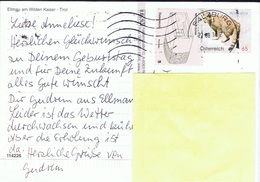 Ellmau am Wilden Kaiser - Tirol
Liebe Anneliese!
Herzlichen Glückwunsch
zu Deinem Geburtstag
und für Deine Zukunft
alles Gute wünscht
Dir Gudrun aus Ellmau
Leider ist das Wetter
durchwachsen und kühl
aber die Erholung ist
da. Herzliche Grüße von
Gudrun
114228
Österreich
65